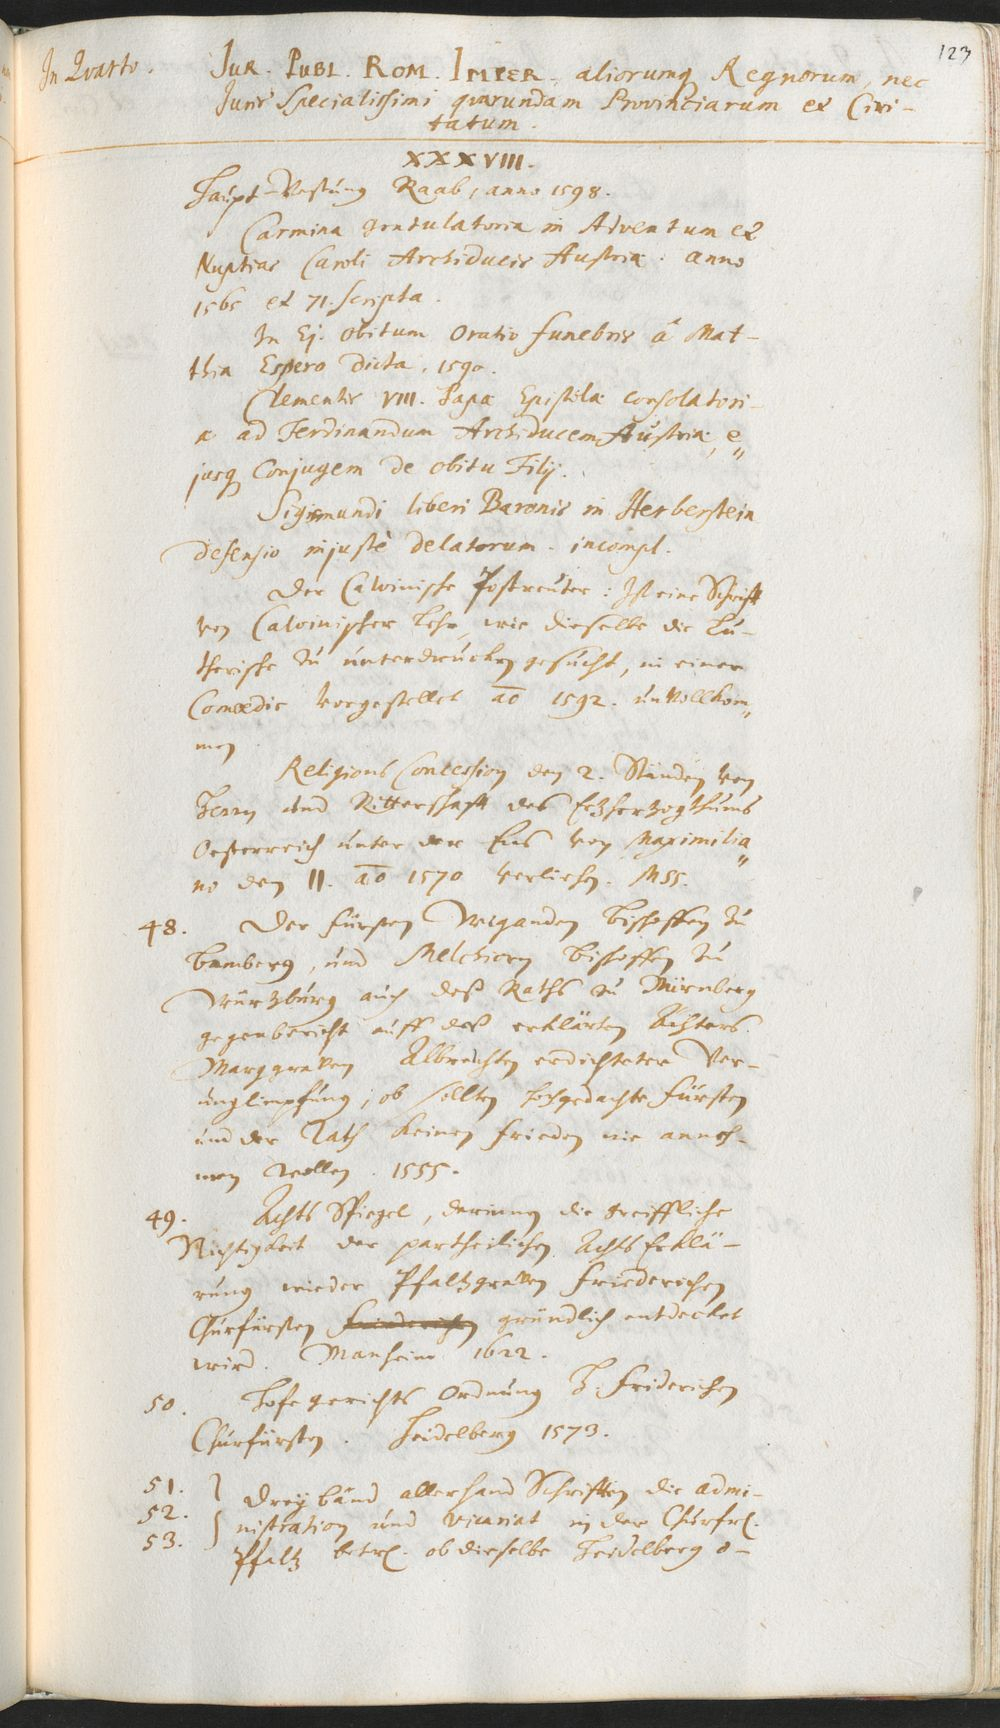 123
In Qvarto. JUR. PUBL. ROM. IMPER. aliorumq Regnorum, nec
Juris Specialissimi quarundam Provinciarum et Civi-
tatum.
XXXVIII.
Haupt-Vestung Raab, anno 1598.
Carmina gratulatoria in Adventum et
Nuptias Caroli Archiducis Austriæ. anno
1565 et 71. scripta.
In Ej. obitum Oratio funebris â Mat-
thia Espero dicta. 1590.
Clementis VIII. Papæ Epistola consolatori-
a ad Ferdinandum Archiducem Austriæ, e„
jusq Conjugem de obitu Filij.
Sigismundi liberi Baronis in Herberstein
defensio injustè delatorum. incompl.
Der Calvinische Postreuter: Ist eine Schrifft
von Calvinischer Lehr, wie dieselbe die Lu-
therische zu unterdrucken gesucht, in einer
Comœdie vorgestellet ao 1592. unvollkom„
men
Religions Concession den 2. Ständen von
Herrn und Ritterschafft des Ertzhertzogthums
Oesterreich unter der Ens von Maximilia„
no dem II. ao 1570 verliehen. MSS.
48. Der Fürsten Weganden Bischoffen zu
Bamberg, und Melchiorn Bischoffen zu
Würtzburg auch deß Raths zu Nürnberg
gegenbericht auff deß erklärten Ächters.
Marggraven Albrechten erdichteter Ver-
unglimpfung, ob sollten hochgedachte Fürsten
und der Rath keinen Frieden nie anneh-
men wollen. 1555.
49. Achts Spiegel, darinnen die greiffliche
Nichtigkeit der partheilichen Achts Erklä-
rung wieder Pfaltzgraven Friederichen
Churfürsten Friederichen gründlich entdecket
wird. Manheim 1622.
50. Hofegerichts Ordnung H. Friderichen
Churfürsten. Heidelberg 1573.
51. } Drey bänd allerhand Schrifften die admi-
52. nistration und Vicariat in der Churfrl.
53. Pfaltz betrl. ob dieselbe Heidelberg o-